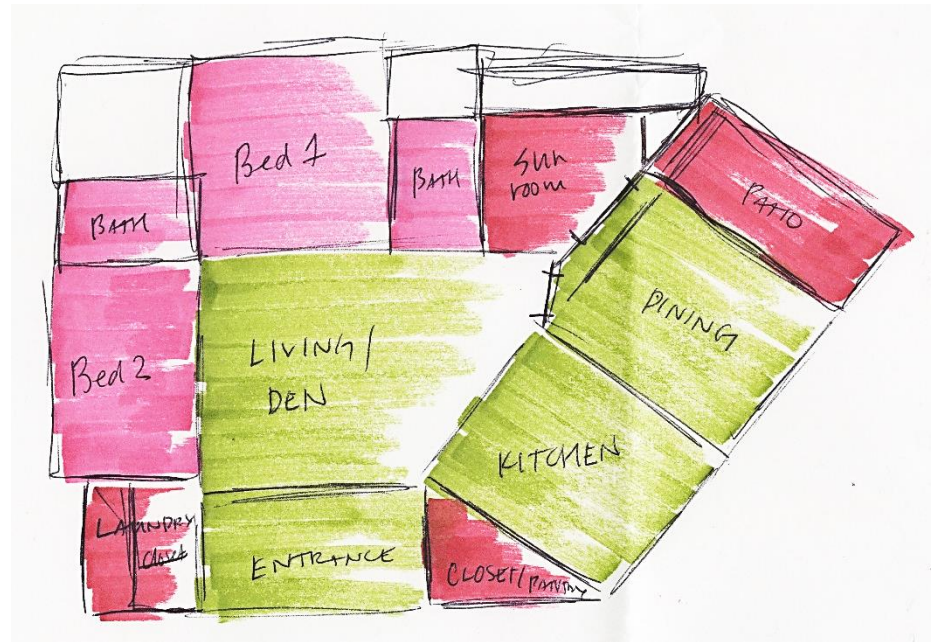 Bed 1
BATH
Sun
room
PATIO
BATH
DINING
LIVING/
DEN
Bed 2
KITCHEN
LAUNDRY
closet
ENTRANCE
CLOSET/PANTRY